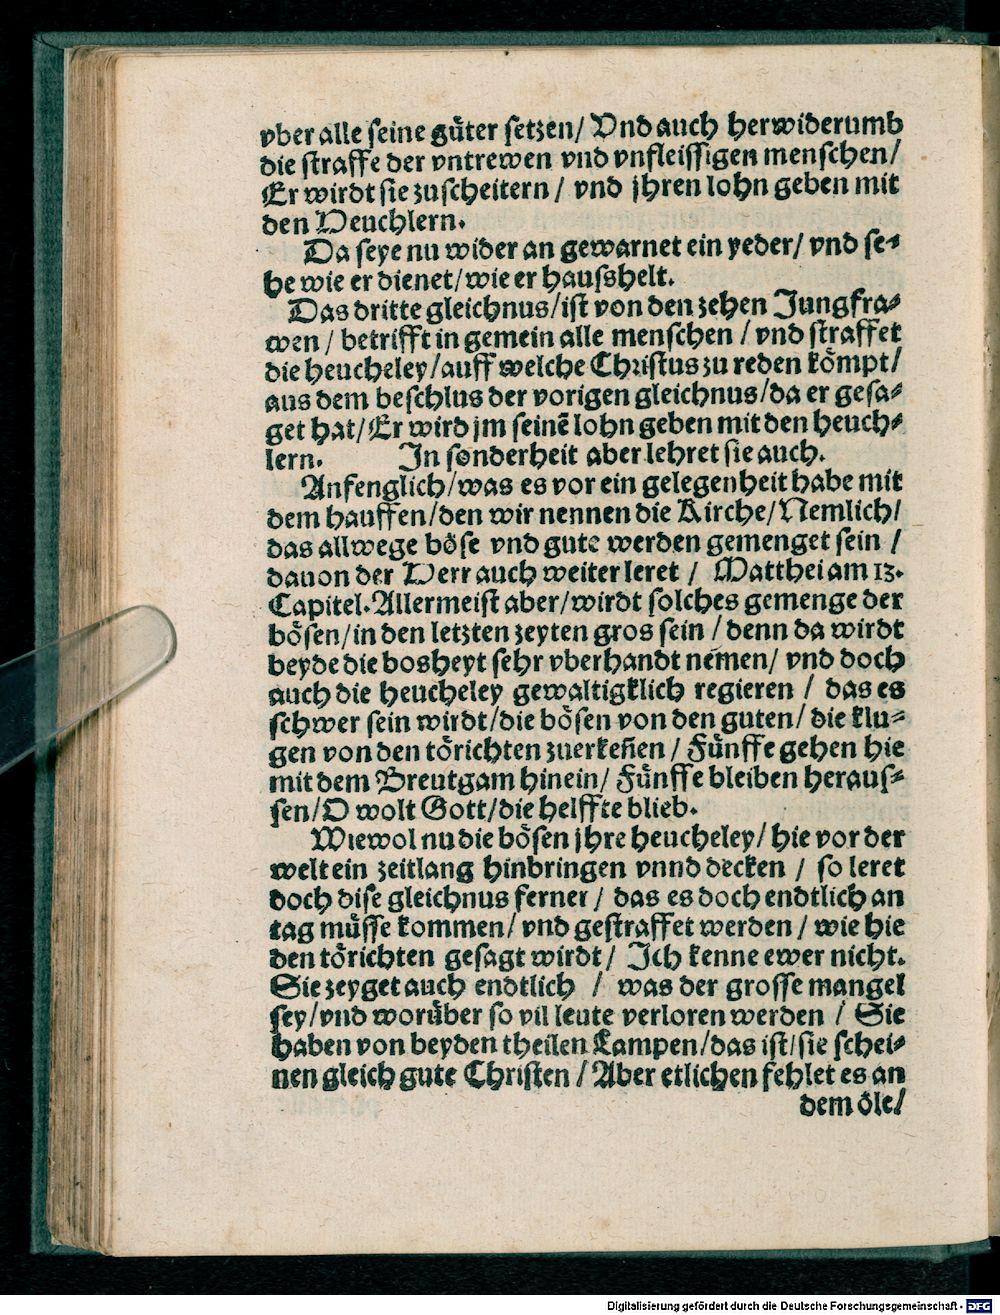 vber alle seine güter setzen/ Vnd auch herwiderumb
die straffe der vntrewen vnd vnfleissigen menschen/
Er wirdt sie zuscheitern / vnd jhren lohn geben mit
den Heuchlern.
Da seye nu wider an gewarnet ein yeder/ vnd se-
he wie er dienet/wie er haußhelt.
Das dritte gleichnus/ist von den zehen Jungfra-
wen / betrifft in gemein alle menschen / vnd straffet
die heucheley/auff welche Christus zu reden kömpt/
aus dem beschlus der vorigen gleichnus/da er gesa-
get hat/Er wird jm seinē lohn geben mit den heuch-
lern. In sonderheit aber lehret sie auch.
Anfenglich/was es vor ein gelegenheit habe mit
dem hauffen/den wir nennen die Kirche/Nemlich/
das allwege böse vnd gute werden gemenget sein /
dauon der Herr auch weiter leret / Matthei am 13.
Capitel.Allermeist aber/wirdt solches gemenge der
bösen/in den letzten zeyten gros sein / denn da wirdt
beyde die bosheyt sehr vberhandt nemen/ vnd doch
auch die heucheley gewaltigklich regieren / das es
schwer sein wirdt/die bösen von den guten/ die klu-
gen von den törichten zuerkeñen / Fünffe gehen hie
mit dem Breutgam hinein/ Fünffe bleiben heraus-
sen/O wolt Gott/die helffte blieb.
Wiewol nu die bösen jhre heucheley/ hie vor der
welt ein zeitlang hinbringen vnnd decken / so leret
doch dise gleichnus ferner / das es doch endtlich an
tag müsse kommen/ vnd gestraffet werden / wie hie
den törichten gesagt wirdt / Ich kenne ewer nicht.
Sie zeyget auch endtlich / was der grosse mangel
sey/vnd worüber so vil leute verloren werden / Sie
haben von beyden theilen Lampen/das ist/sie schei-
nen gleich gute Christen / Aber etlichen fehlet es an
dem öle/
Digitalisierung gefördert durch die Deutsche Forschungsgemeinschaft - DFG